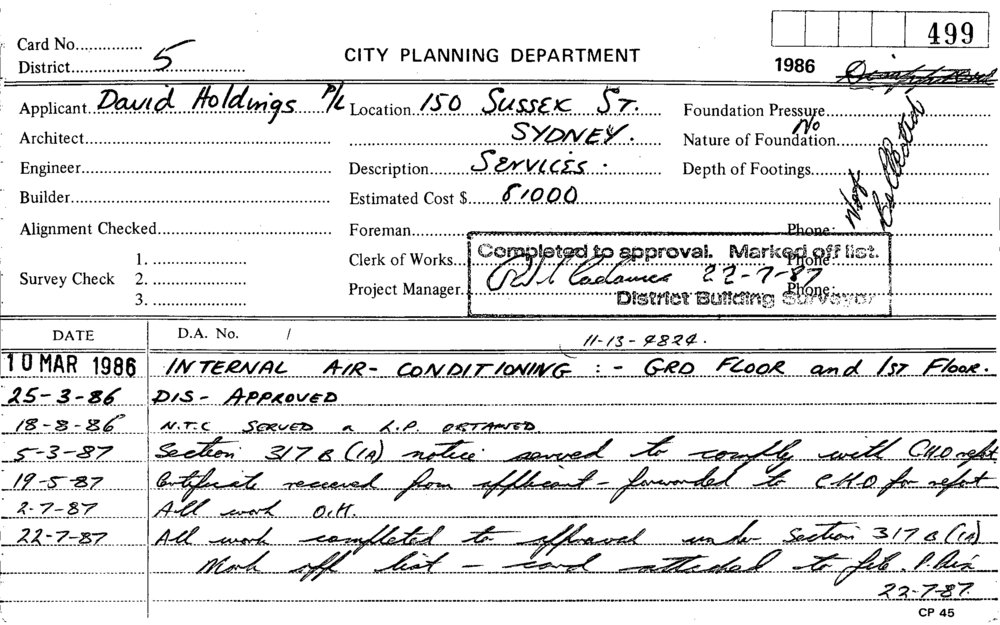 499
Card No...............
District...............5...............
CITY PLANNING DEPARTMENT
1986
Applicant David Holdings P/L
Location 150 SUSSEX ST.
Foundation Pressure
Architect
SYDNEY.
Nature of Foundation
No
Engineer
Description SERVICES.
Depth of Footings
Not
Collected
Builder
Estimated Cost $ 81000
Alignment Checked
Foreman
Phone:
Survey Check
1.
2.
3.
Clerk of Works
Phone
Project Manager
Phone:
Completed to approval. Marked off list.
22-7-87
District Building Surveyor
DATE
D.A. No. /
11-13-4824.
10 MAR 1986 INTERNAL AIR-CONDITIONING :- GRD FLOOR and 1ST FLOOR.
25-3-86 DIS-APPROVED
18-8-86 N.T.C SERVED a L.P. OBTAINED
5-3-87 Section 317 B (1A) notice served to comply with CHO rept
19-5-87 Certificate received from applicant - forwarded to CHO for report
2-7-87 All work O.K.
22-7-87 All work completed to approval under Section 317 B (1A)
Mark off list - card attached to file.
22-7-87.
CP 45